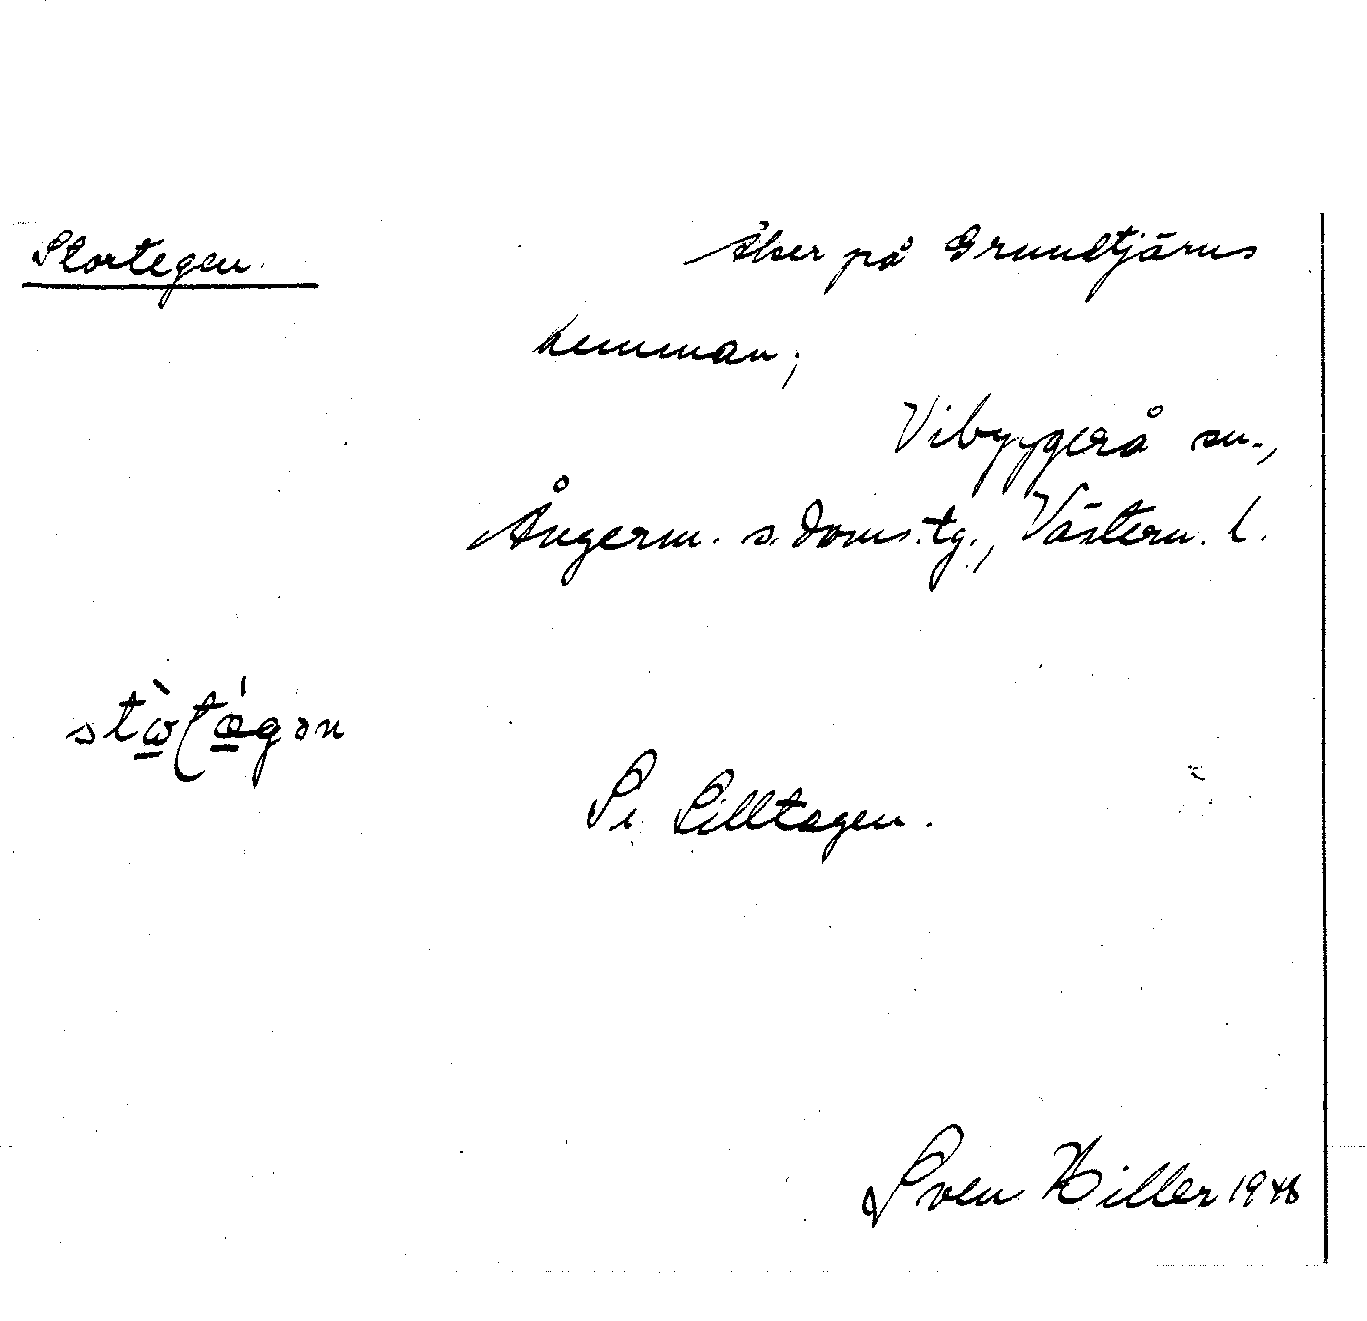 Stortegen.
Åker på Grundtjärns
hemman;
Vibyggerå sn.,
Ångerm. s. doms.tg., Västern. l.
Se Lilltegen.
Sven Hiller 1948